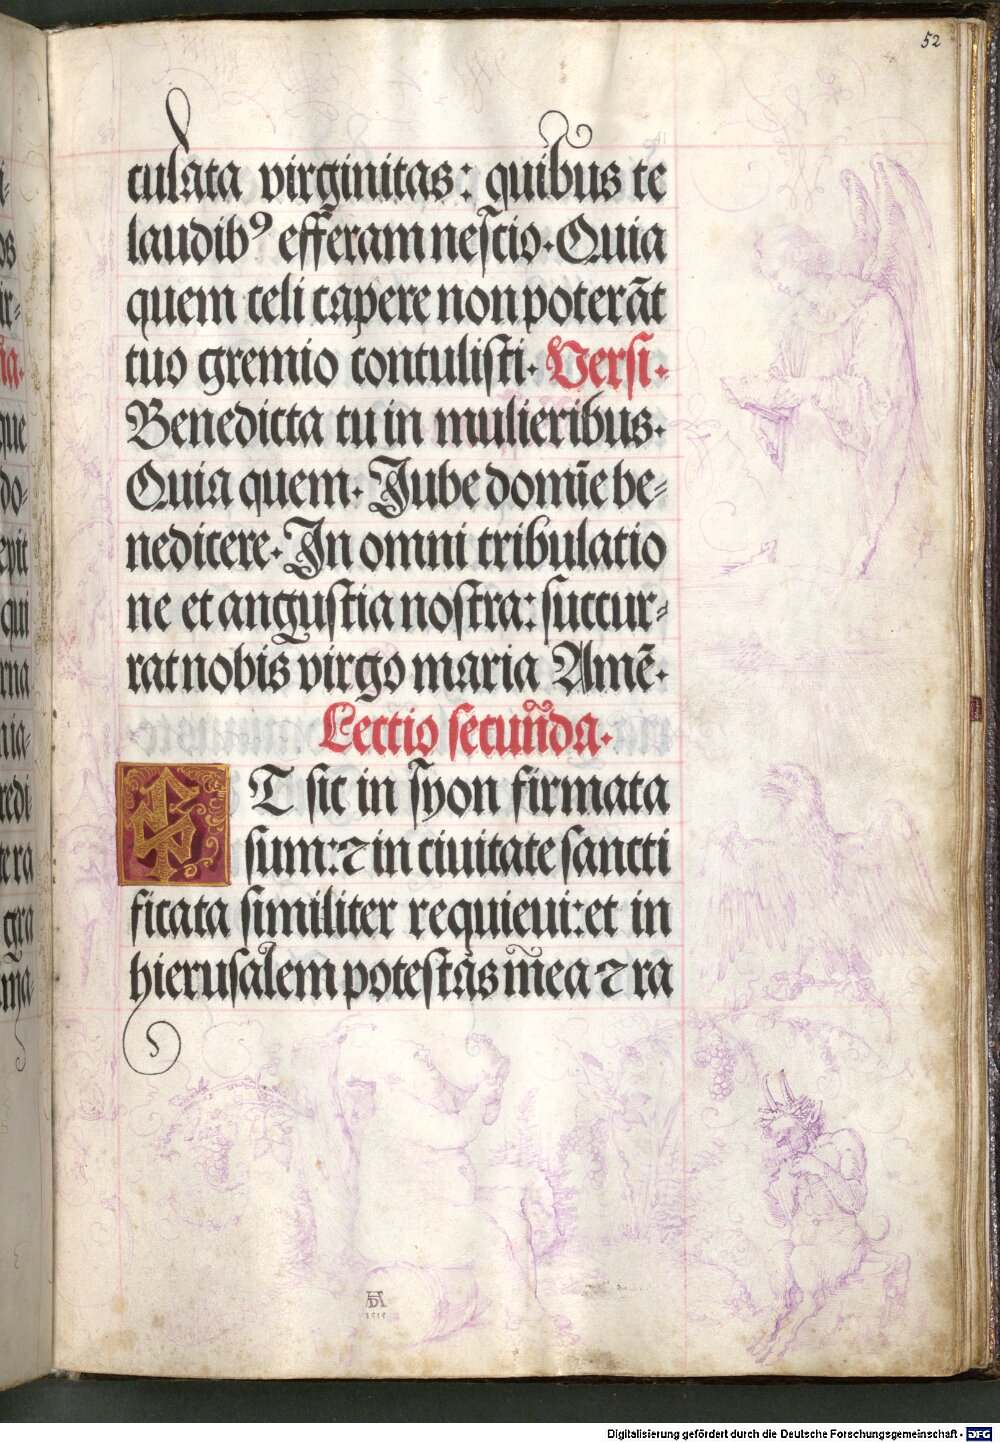 52
culata virginitas: quibus te
laudibꝰ efferam nescio. Quia
quem celi capere non poterāt
tuo gremio contulisti. Versi.
Benedicta tu in mulieribus.
Quia quem. Jube domīe be-
nedicere. In omni tribulatio
ne et angustia nostra: succur-
rat nobis virgo maria Amē.
Lectio secūnda.
ET sic in syon firmata
sum: ⁊ in ciuitate sancti
ficata similiter requieui: et in
hierusalem potestas mea ⁊ ra
AD
1515
Digitalisierung gefördert durch die Deutsche Forschungsgemeinschaft - DFG